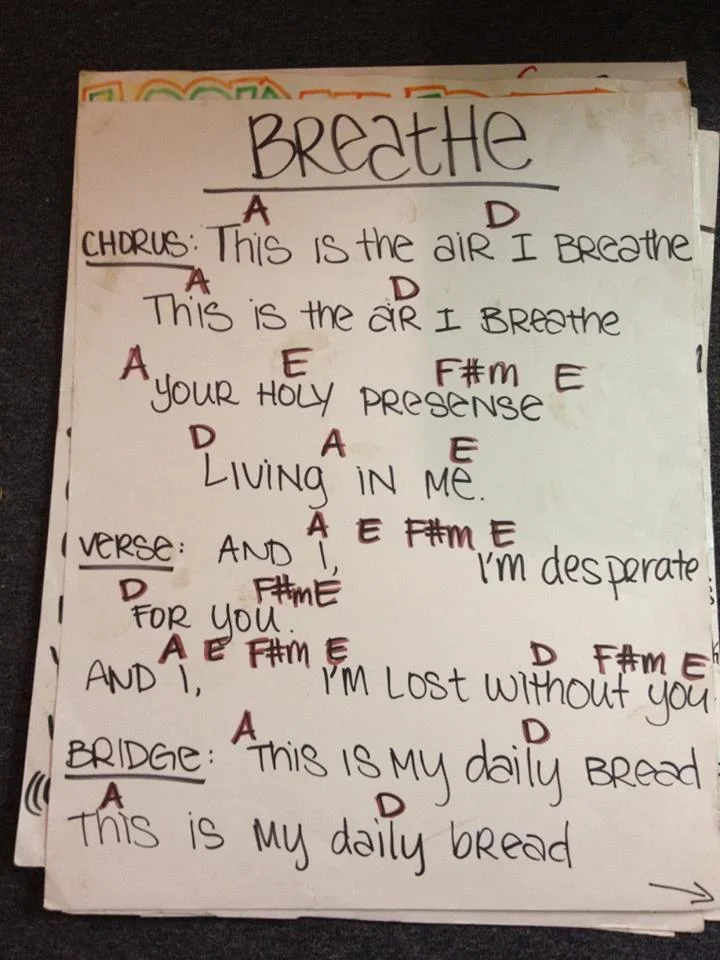 BReatHe
A D
CHORUS: This is the aiR I BReathe
A D
This is the aiR I BReathe
A E F#m E
YOUR HOLY PReSeNSe
D A E
LIVING IN Me.
A E F#m E
VeRSe: AND I, I'm desperate
D F#m E
FOR you.
A E F#m E D F#m E
AND I, I'M LOST WITHOUT you
A D
BRIDGe: This IS MY daily BRead
A D
This is my daily bRead
→